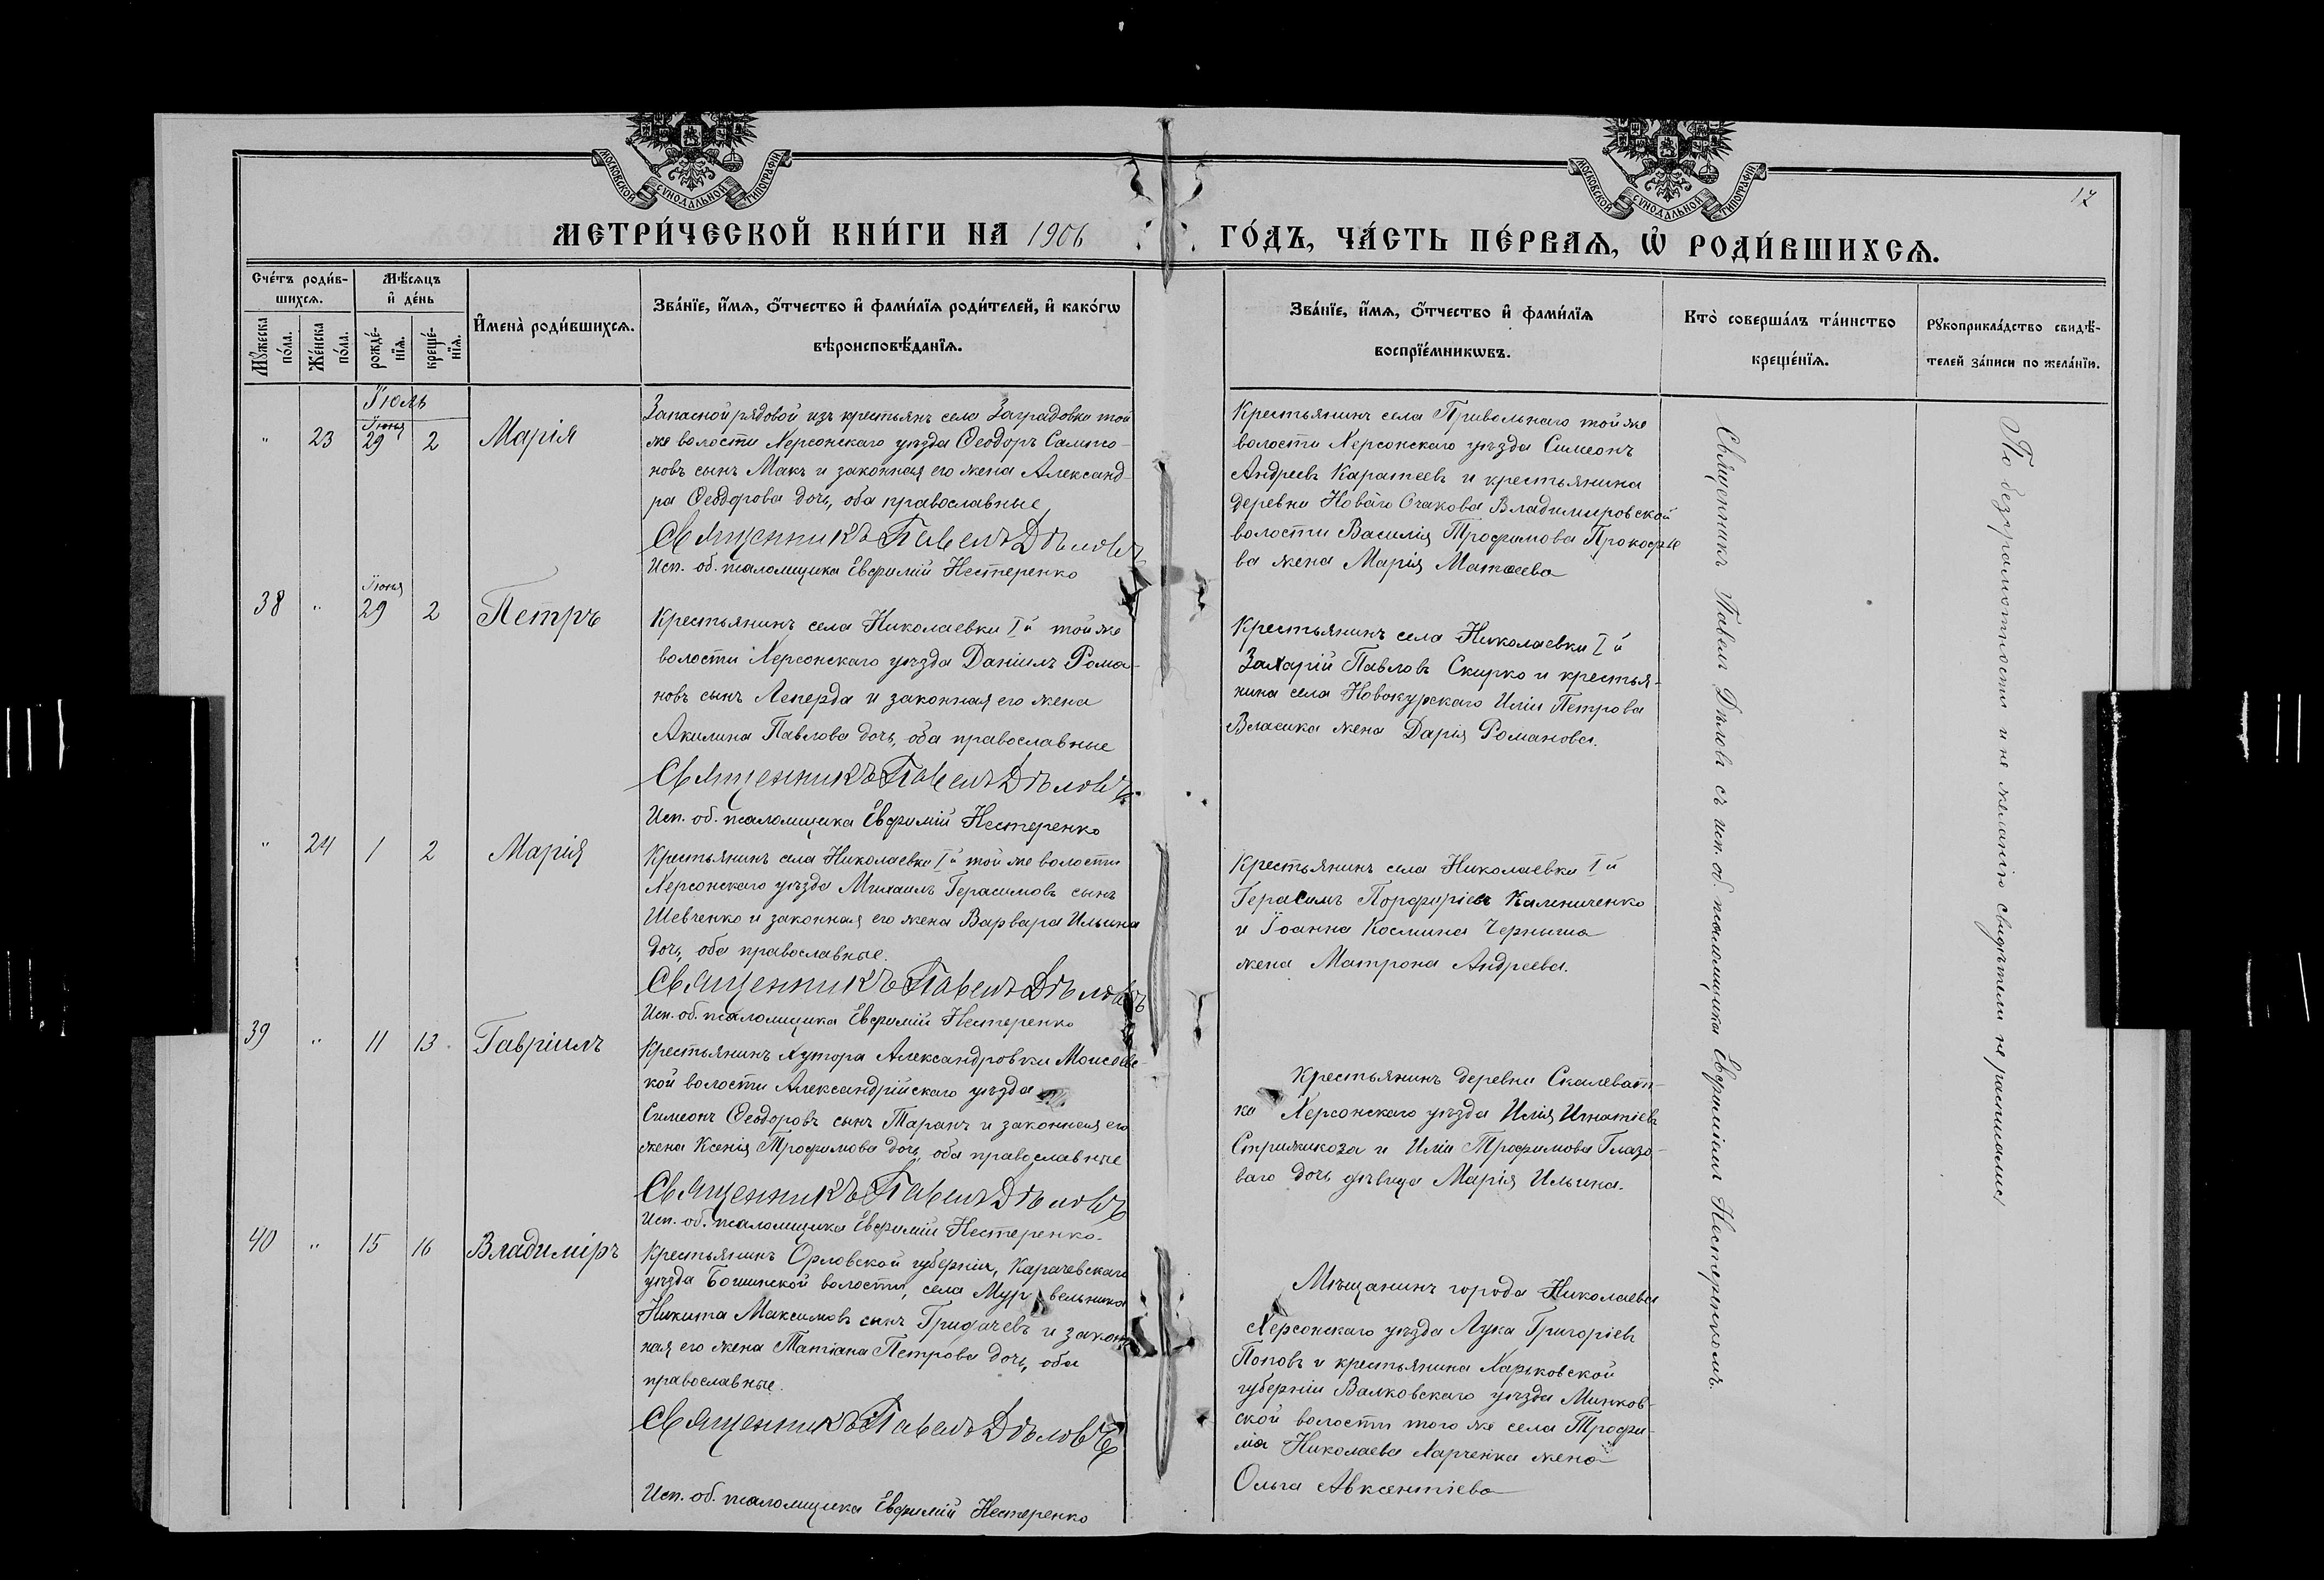 МОСКОВСКОЙ СѴНОДАЛЬНОЙ ТИПОГРАФІИ
МОСКОВСКОЙ СѴНОДАЛЬНОЙ ТИПОГРАФІИ
17
МЕТРИ́ЧЕСКОЙ КНИ́ГИ НА 1906
ГО́ДЪ, ЧА́СТЬ ПЕ́РВАѦ, Ѡ҆ РОДИ́ВШИХСѦ.
Сче́тъ роди́в-
шихсѧ.
Мѣ́сѧцъ
и҆ де́нь
Мꙋ́жеска по́ла.
Же́нска по́ла.
рожде́-нїѧ.
креще́-нїѧ.
И҆мена̀ роди́вшихсѧ.
Зва́нїе, и҆́мѧ, ѻ҆́тчество и҆ фами́лїѧ роди́телей, и҆ како́гѡ
вѣроисповѣ́данїѧ.
Зва́нїе, и҆́мѧ, ѻ҆́тчество и҆ фами́лїѧ
воспрїе́мникѡвъ.
Кто̀ соверша́лъ та́инство
креще́нїѧ.
Рꙋкоприкла́дство свидѣ́-
телей за́писи по жела́нїю.
Іюль
Іюня
" 23 29 2 Марія
Запасной рядовой изъ крестьянъ села Заградовки той
же волости Херсонскаго уѣзда Ѳеодоръ Сампсо-
новъ сынъ Макъ и законная его жена Александ-
ра Ѳеодорова дочь, оба православные
Священникъ Павелъ Дѣловъ
Исп. об. псаломщика Евфимій Нестеренко
Крестьянинъ села Привольнаго той же
волости Херсонскаго уѣзда Симеонъ
Андреевъ Каратеевъ и крестьянина
деревни Новаго Очакова Владимировской
волости Василія Трофимова Прокофье
ва жена Марія Матѳеева
Іюня
38 " 29 2 Петръ
Крестьянинъ села Николаевки I й той же
волости Херсонскаго уѣзда Даніилъ Рома-
новъ сынъ Леперда и законная его жена
Акилина Павлова дочь, оба православные
Священникъ Павелъ Дѣловъ
Исп. об. псаломщика Евфимій Нестеренко
Крестьянинъ села Николаевки I й
Захарій Павловъ Скирко и крестья-
нина села Новокурскаго Иліи Петрова
Власика жена Дарія Романова.
" 24 1 2 Марія
Крестьянинъ села Николаевки I й той же волости
Херсонскаго уѣзда Михаилъ Герасимовъ сынъ
Шевченко и законная его жена Варвара Ильина
дочь, оба православные.
Священникъ Павелъ Дѣловъ
Исп. об. псаломщика Евфимій Нестеренко
Крестьянинъ села Николаевки I й
Герасимъ Порфиріевъ Калениченко
и Іоанна Космина Черныша
жена Матрона Андреева.
39 " 11 13 Гавріилъ
Крестьянинъ хутора Александровки Моисеевс-
кой волости Александрійскаго уѣзда
Симеонъ Ѳеодоровъ сынъ Таранъ и законная его
жена Ксенія Трофимова дочь, оба православные
Священникъ Павелъ Дѣловъ
Исп. об. псаломщика Евфимій Нестеренко.
Крестьянинъ деревни Скалеват-
ки Херсонскаго уѣзда Илія Игнатіевъ
Стрижикоза и Иліи Трофимова Глазо-
ваго дочь дѣвица Марія Ильина.
40 " 15 16 Владиміръ
Крестьянинъ Орловской губерніи, Карачевскаго
уѣзда Бошинской волости, села Мур вельника
Никита Максимовъ сынъ и закон
ная его жена Татіана Петрова дочь, оба
православные.
Священникъ Павелъ Дѣловъ
Исп. об. псаломщика Евфимій Нестеренко
Мѣщанинъ города Николаева
Херсонскаго уѣзда Лука Григоріевъ
Поповъ и крестьянина Харьковской
губерніи Валковскаго уѣзда Минков-
ской волости того же села Трофи-
ма Николаева Харченка жена
Ольга Авксентіева
Священникъ Павелъ Дѣловъ съ исп. об. псаломщика Евфиміемъ Нестеренкомъ.
По безграмотности и не желанію свидѣтели не расписались